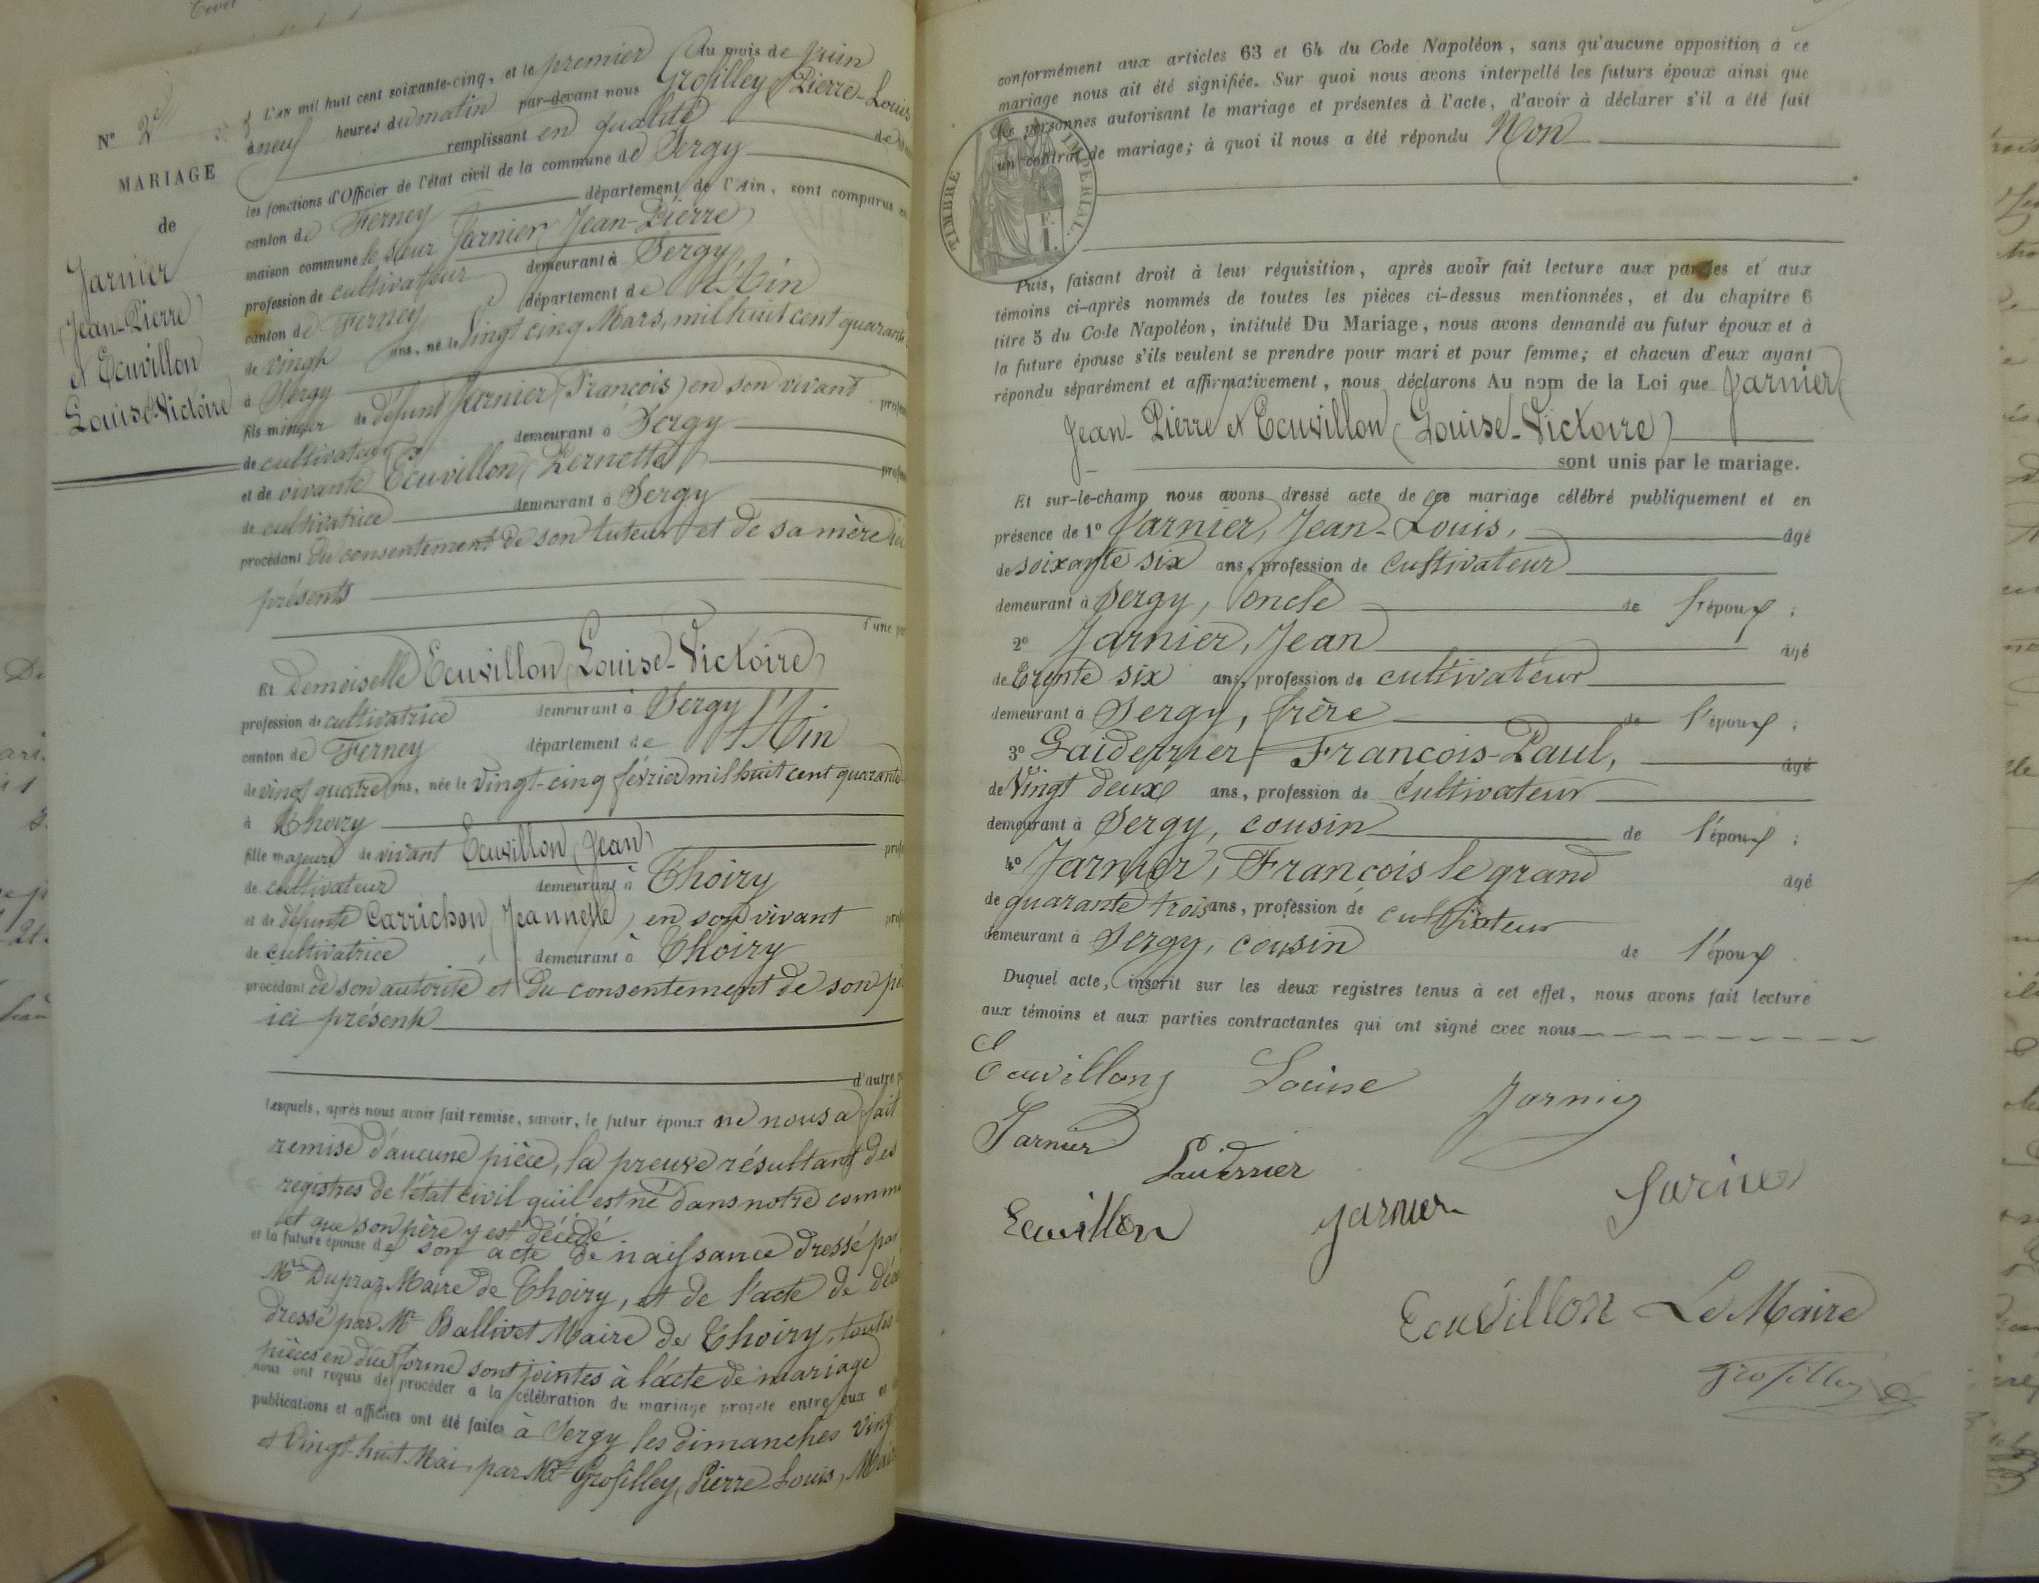 N° 2
MARIAGE
de
Jarnier
Jean-Pierre
et Ecuvillon
Louise-Victoire
L'an mil huit cent soixante-cinq, et le premier du mois de Juin
à neuf heures du matin par-devant nous Grosilley Pierre-Louis
remplissant en qualité de
les fonctions d'Officier de l'état civil de la commune de Sergy
canton de Ferney département de l'Ain, sont comparus en
maison commune le sieur Jarnier Jean-Pierre
profession de cultivateur demeurant à Sergy
canton de Ferney département de l'Ain
de vingt ans, né le Vingt cinq Mars, mil huit cent quarante
à Sergy
fils mineur de défunt Jarnier (François) en son vivant
de cultivateur demeurant à Sergy
et de vivante Ecuvillon, Pernette
de cultivatrice demeurant à Sergy
procédant du consentement de son tuteur et de sa mère ici
présents
d'une
Et Demoiselle Ecuvillon (Louise-Victoire)
profession de cultivatrice demeurant à Sergy
canton de Ferney département de l'Ain
de vingt quatre ans, née le vingt-cinq février mil huit cent quarante
à Thoiry
fille majeure de vivant Ecuvillon (Jean)
de cultivateur demeurant à Thoiry
et de défunte Carrichon (Jeannette) en son vivant
de cultivatrice demeurant à Thoiry
procédant de son autorité et du consentement de son
ici présent
d'autre
Lesquels, après nous avoir fait remise, savoir, le futur époux ne nous a fait
remise d'aucune pièce, la preuve résultant des
registres de l'état civil qu'il est né dans notre
et que son père y est décédé
et la future épouse de son acte de naissance dressé par
Mr Dupraz Maire de Thoiry, et de l'acte de
dressé par Mr Ballivet Maire de Thoiry, toutes
pièces en due forme sont jointes à l'acte de mariage
nous ont requis de procéder à la célébration du mariage projeté entre eux et
publications et affiches ont été faites à Sergy les dimanches
et Vingt-huit Mai, par Mr Grosilley, Pierre-Louis,
conformément aux articles 63 et 64 du Code Napoléon, sans qu'aucune opposition à ce
mariage nous ait été signifiée. Sur quoi nous avons interpellé les futurs époux ainsi que
les personnes autorisant le mariage et présentes à l'acte, d'avoir à déclarer s'il a été fait
un contrat de mariage; à quoi il nous a été répondu Non
TIMBRE IMPÉRIAL
Puis, faisant droit à leur réquisition, après avoir fait lecture aux parties et aux
témoins ci-après nommés de toutes les pièces ci-dessus mentionnées, et du chapitre 6
titre 5 du Code Napoléon, intitulé Du Mariage, nous avons demandé au futur époux et à
la future épouse s'ils veulent se prendre pour mari et pour femme; et chacun d'eux ayant
répondu séparément et affirmativement, nous déclarons Au nom de la Loi que Jarnier
Jean-Pierre et Ecuvillon (Louise-Victoire)
sont unis par le mariage.
Et sur-le-champ nous avons dressé acte de ce mariage célébré publiquement et en
présence de 1° Jarnier, Jean-Louis, âgé
de soixante six ans, profession de cultivateur
demeurant à Sergy, oncle de l'époux;
2° Jarnier, Jean âgé
de trente six ans, profession de cultivateur
demeurant à Sergy, frère de l'époux;
3° Laidernier François-Paul, âgé
de Vingt deux ans, profession de cultivateur
demeurant à Sergy, cousin de l'époux;
4° Jarnier, François le grand âgé
de quarante trois ans, profession de cultivateur
demeurant à Sergy, cousin de l'époux
Duquel acte, inscrit sur les deux registres tenus à cet effet, nous avons fait lecture
aux témoins et aux parties contractantes qui ont signé avec nous
Ecuvillon Louise Jarnier
Jarnier
Laidernier
Ecuvillon Jarnier Jarnier
Ecuvillon Le Maire
Grosilley